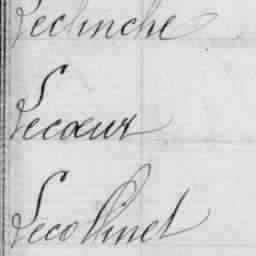 Leclinche
Lecœur
Lecollinet